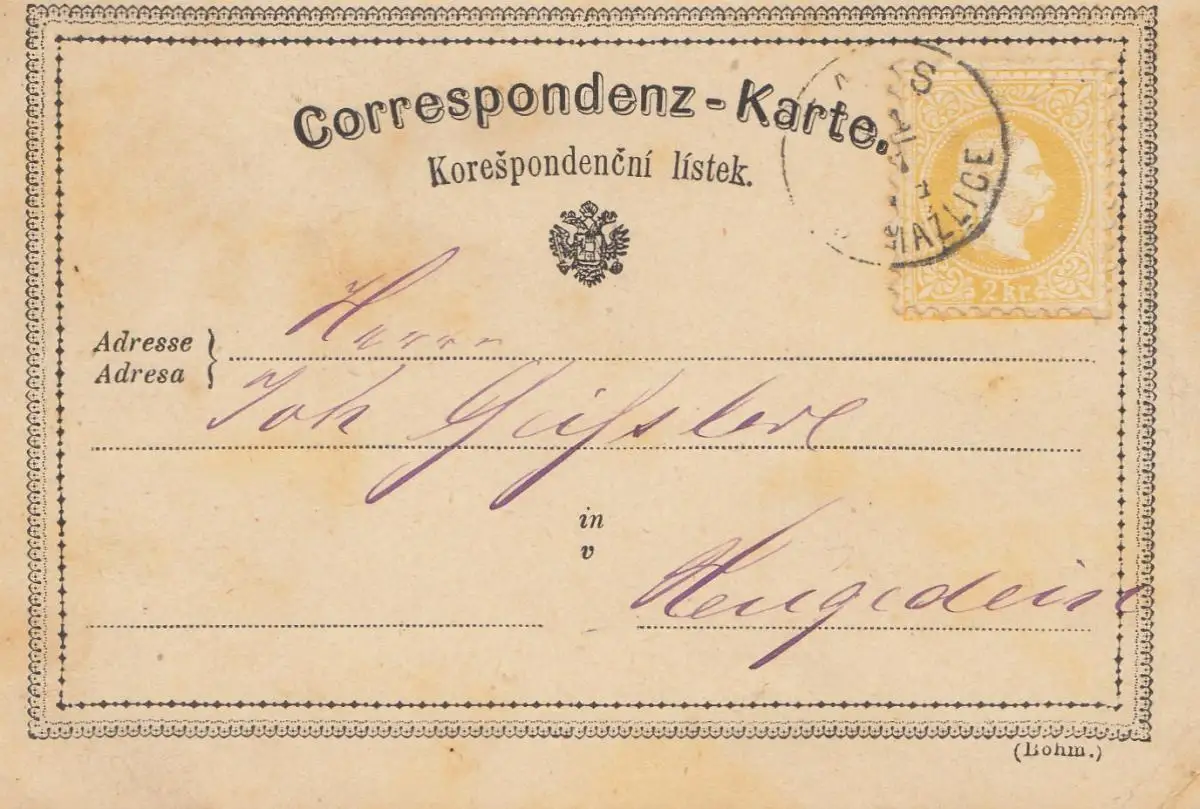 Correspondenz-Karte.
Korešpondenční lístek.
2 Kr.
Adresse
Adresa
Herrn
Joh
in
v
Neugedein
(Böhm.)